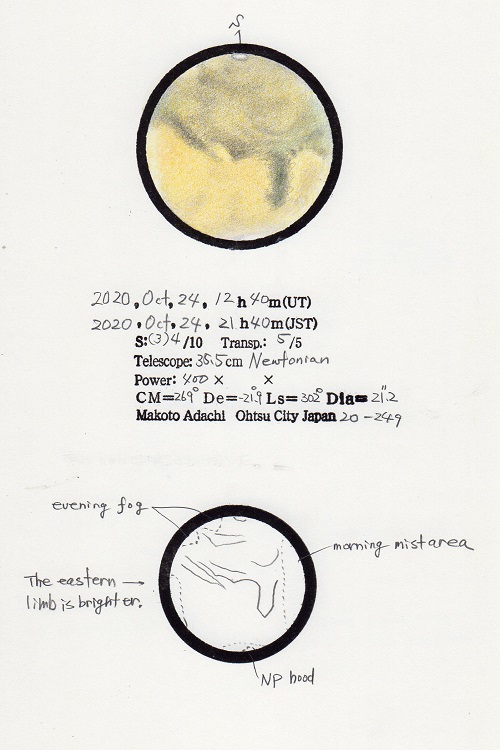 S
2020, Oct, 24, 12h40m(UT)
2020, Oct, 24, 21h40m(JST)
S:(3)4/10 Transp.: 5/5
Telescope: 35.5cm Newtonian
Power: 400× ×
CM=269° De=-21.9° Ls=302° Dia=21.2"
Makoto Adachi Ohtsu City Japan 20-249
evening fog
morning mist area
The eastern →
limb is brighter.
NP hood